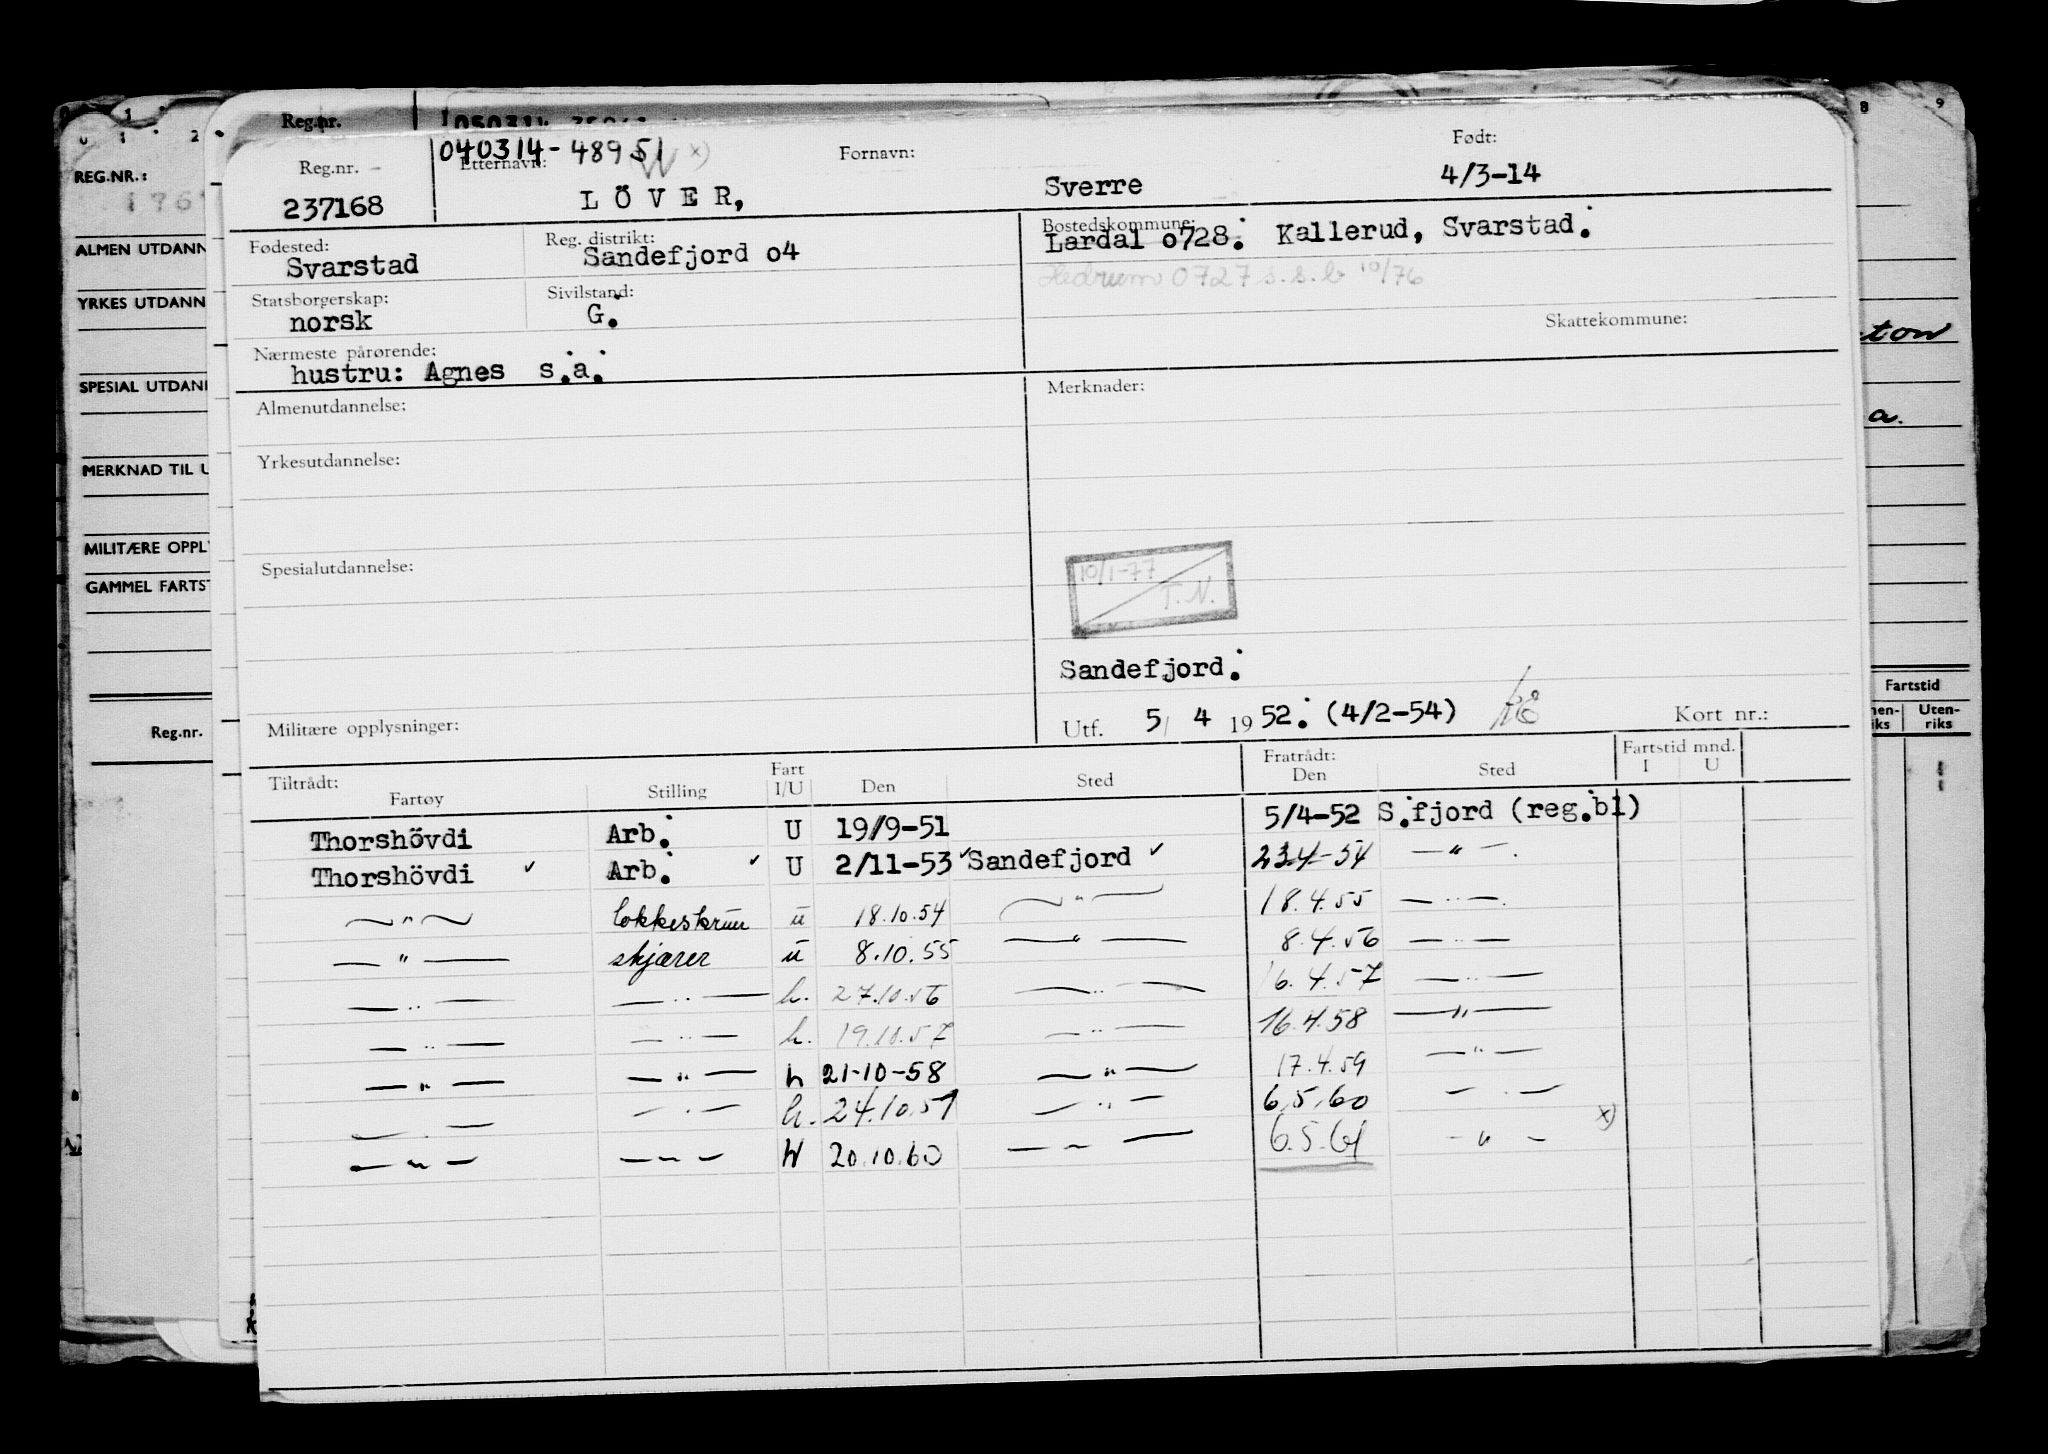 Reg.nr.
0 1 2
8 9
REG.NR.:
040314-48951 x)
Reg.nr. Etternavn: Fornavn: Født:
237168 LÖVER, Sverre 4/3-14
Fødested: Reg. distrikt: Bostedskommune:
Svarstad Sandefjord o4 Lardal o728. Kallerud, Svarstad.
Hedrum 0727 s.s.b 10/76
Statsborgerskap: Sivilstand:
norsk G.
Skattekommune:
Nærmeste pårørende:
hustru: Agnes s.a.
Almenutdannelse: Merknader:
Yrkesutdannelse:
Spesialutdannelse:
10/1-77
T.N.
Sandefjord.
Militære opplysninger: Utf. 5/ 4 1952. (4/2-54) Kort nr.:
Tiltrådt: Fart Fratrådt: Fartstid mnd.
Fartøy Stilling I/U Den Sted Den Sted I U
Thorshövdi Arb. U 19/9-51 5/4-52 S.fjord (reg.bl)
Thorshövdi ✓ Arb. ✓ U 2/11-53 ✓ Sandefjord ✓ 23.4-54 — " —.
— " — kokkeskriv u 18.10.54 — " — 18.4.55 — " —.
— " — skjærer u 8.10.55 — " — 8.4.56 — " —
— " — — " — h. 27.10.56 — " — 16.4.57 — " —
— " — — " — h. 19.10.57 — " — 16.4.58 — " —
— " — — " — h 21-10-58 — " — 17.4.59 — " —
— " — — " — h. 24.10.59 — " — 6.5.60 — " —
— " — — " — H 20.10.60 — " — 6.5.61 — " — x)
ALMEN UTDANN
YRKES UTDANN
SPESIAL UTDAN
MERKNAD TIL U
MILITÆRE OPPL
GAMMEL FARTS
Reg.nr.
ton
a.
Fartstid
nen-
iks
Uten-
riks